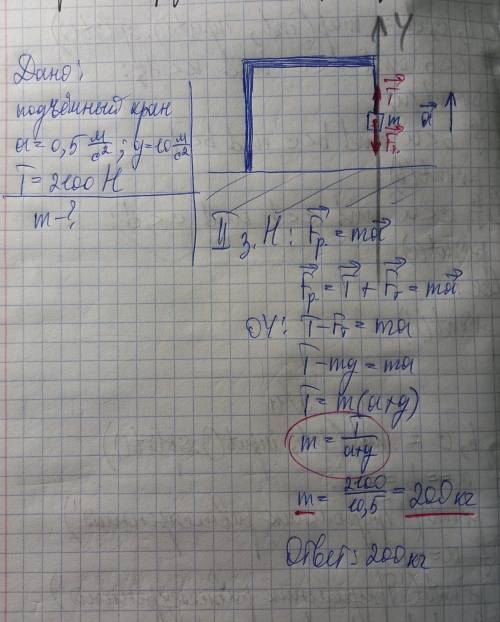 Дано:
подъёмный кран
a = 0,5 м/с²; g = 10 м/с²
T = 2100 Н
m - ?
Y
T⃗
m a⃗
F⃗т
II з. Н: F⃗р = ma⃗
F⃗р = T⃗ + F⃗т = ma⃗
OY: T - Fт = ma
T - mg = ma
T = m(a+g)
m = T/(a+g)
m = 2100/10,5 = 200 кг
Ответ: 200 кг